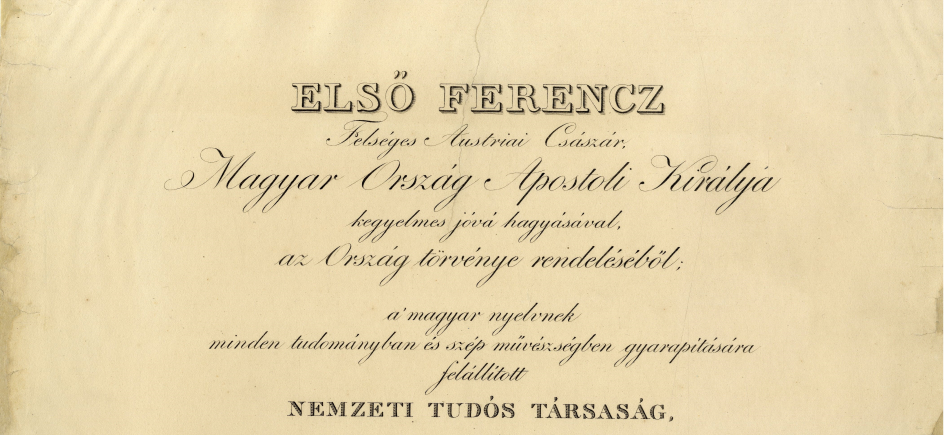 ELSŐ FERENCZ
Felséges Austriai Császár,
Magyar Ország Apostoli Királyja
kegyelmes jóvá hagyásával,
az Ország törvénye rendeléséből;
a' magyar nyelvnek
minden tudományban és szép művészségben gyarapítására
felállított
NEMZETI TUDÓS TÁRSASÁG,